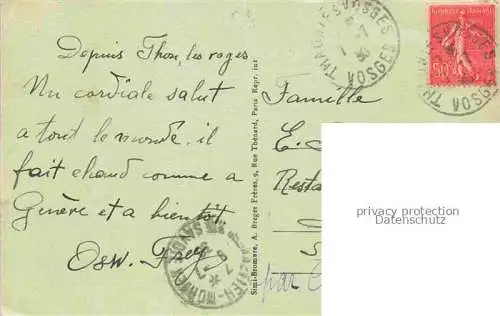 Depuis Thaon les vosges
Un cordiale salut
a tout le monde. il
fait chaud comme a
Genève et a bientôt
Osw. Frey
Semi-Bromure, A. Breger Frères, 9, Rue Thénard, Paris Repr. int
THAON LES VOSGES
VOSGES
50
Famille
E. C
Resta
privacy protection
Datenschutz
par C
MORNEX